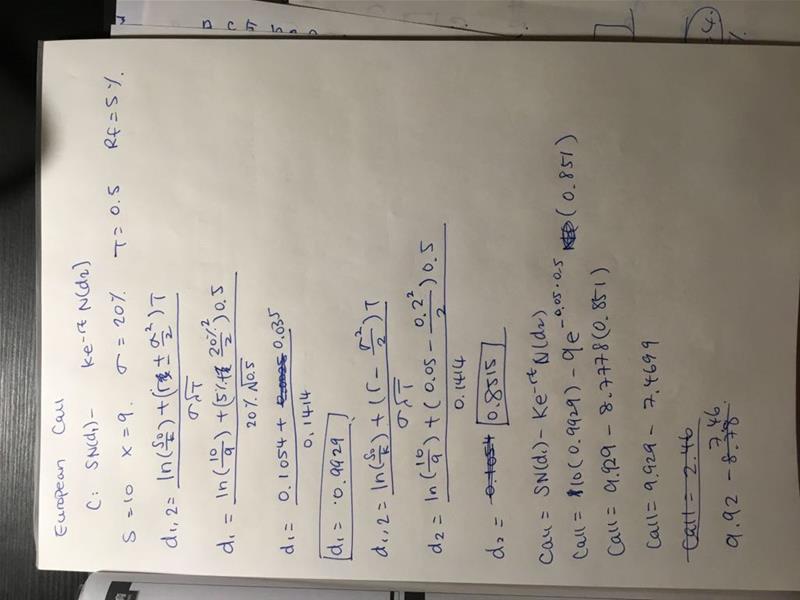 European Call
C: SN(d1) - Ke^-rt N(d2)
S=10 X=9. σ=20% T=0.5 Rf=5%.
d1,2 = ln(So/K)+(r ± σ²/2)T / σ√T
d1 = ln(10/9)+(5%+ 20%²/2)0.5 / 20%√0.5
d1 = 0.1054 + 0.035 / 0.1414
d1 = 0.9929
d1,2 = ln(So/K)+(r - σ²/2)T / σ√T
d2 = ln(10/9)+(0.05 - 0.2²/2)0.5 / 0.1414
d2 = 0.1054 0.8515
Call = SN(d1) - Ke^-rt N(d2)
Call = 10(0.9929) - 9e^-0.05·0.5 (0.851)
Call = 9.929 - 8.7778(0.851)
Call = 9.929 - 7.4699
Call = 2.46
7.46
9.92 - 8.78
D C